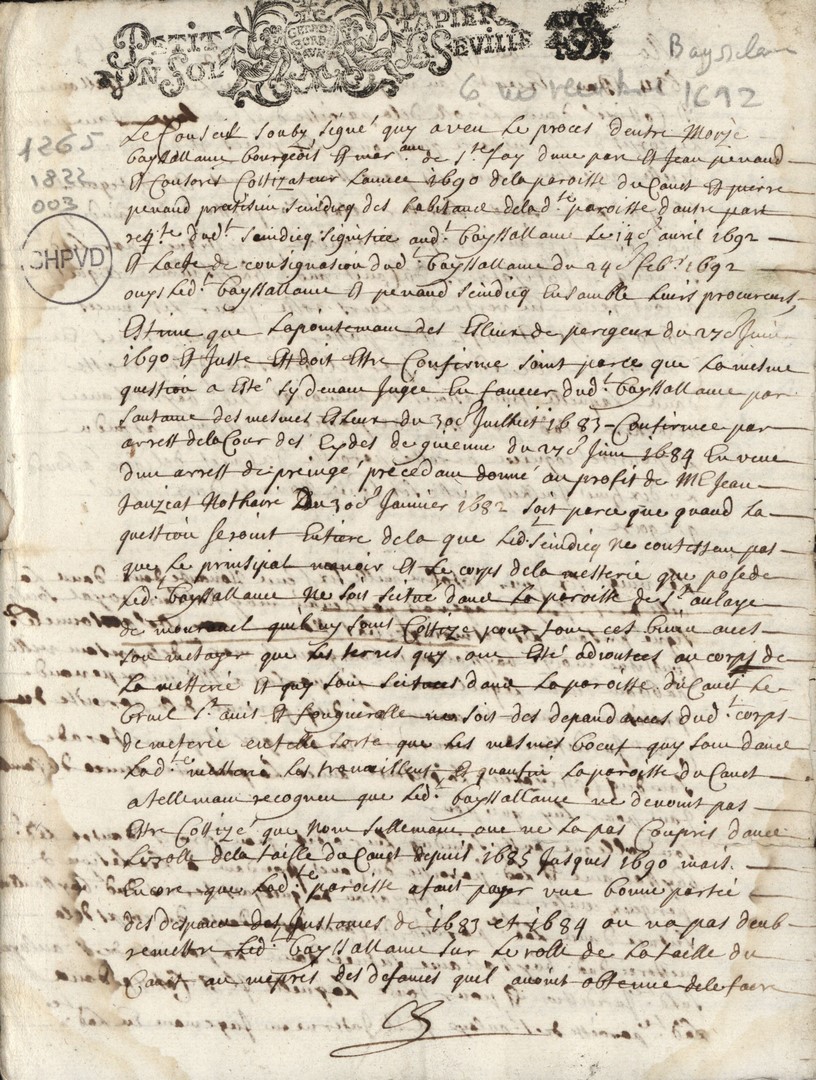 PETIT PAPIER
BON SOL LA SEVILLE
GENER BORD
Baysselan
6 1692
1265
1822
003
CHPVD
Le Conseil soubz signé quy a veu Le procès dentre Moyze
bayssallance bourgeois Et mar de Ste foy dune par Et Jean penaud
Et Consors Cottizateur Lannée 1690 de la paroisse du Canet Et pierre
penaud praticien seindicq des habitance de lad.te paroisse dautre part
req.te dud.t seindicq signiffiee aud.t bayssallance Le 14e avril 1692
Et Lacte de consignasion dud.t bayssallance du 24e feb.r 1692
ouys Led.t bayssallance Et penaud seindicq Ensamble Leurs procureurs,
Estime que Lapointemant des Esleux de perigeux du 27e Juin
1690 Et Juste Et doit Estre Confirmé soint parce que La mesme
question a Esté sy devant Jugée En faveur dud.t bayssallance par
santance des mesmes Esleux du 30e Juilliet 1683 Confirmée par
arrest de la Cour des Eydes de guienne du 27e Juin 1684 En veue
dun arrest de preingé précédant donné au profit de ME Jean
Jauzeat Nothaire Du 30e Janvier 1682 soit parce que quand La
question seroint Entière de la que Led.t seindicq ne conteste pas
que Le principal manoir Et Le corps de la metterie que posede
Led.t bayssallance ne soit scitué dans La paroisse de St aulaye
de quil ny soint Cottizé pour tous ces biens avec
son metayer que Les terres quy ont Esté adjoutées au corps de
La metterie Et quy sont scituées dans La paroisse du Canet Le
breuil St avit Et fouguerolle ne soit des depandances dud.t corps
de meterie en telle sorte que Les mesmes boeuf quy sont dans
Lad.te metterie Les travaillent Et quanfin La paroisse du Canet
a tellemant recogneu que Led.t bayssallance ne devoint pas
Estre Cottizé que non sullemant one ne La pas Compris dans
Le rolle de la taille du Canet depuis 1685 Jusques 1690 mais
Encore que Lad.te paroisse a fait payer une bonne partie
des despance des Justances de 1683 et 1684 on na pas deub
remettre Led.t bayssallance sur Le rolle de La taille du
Canet au mepris des defances quel avoint obtenue de le faire